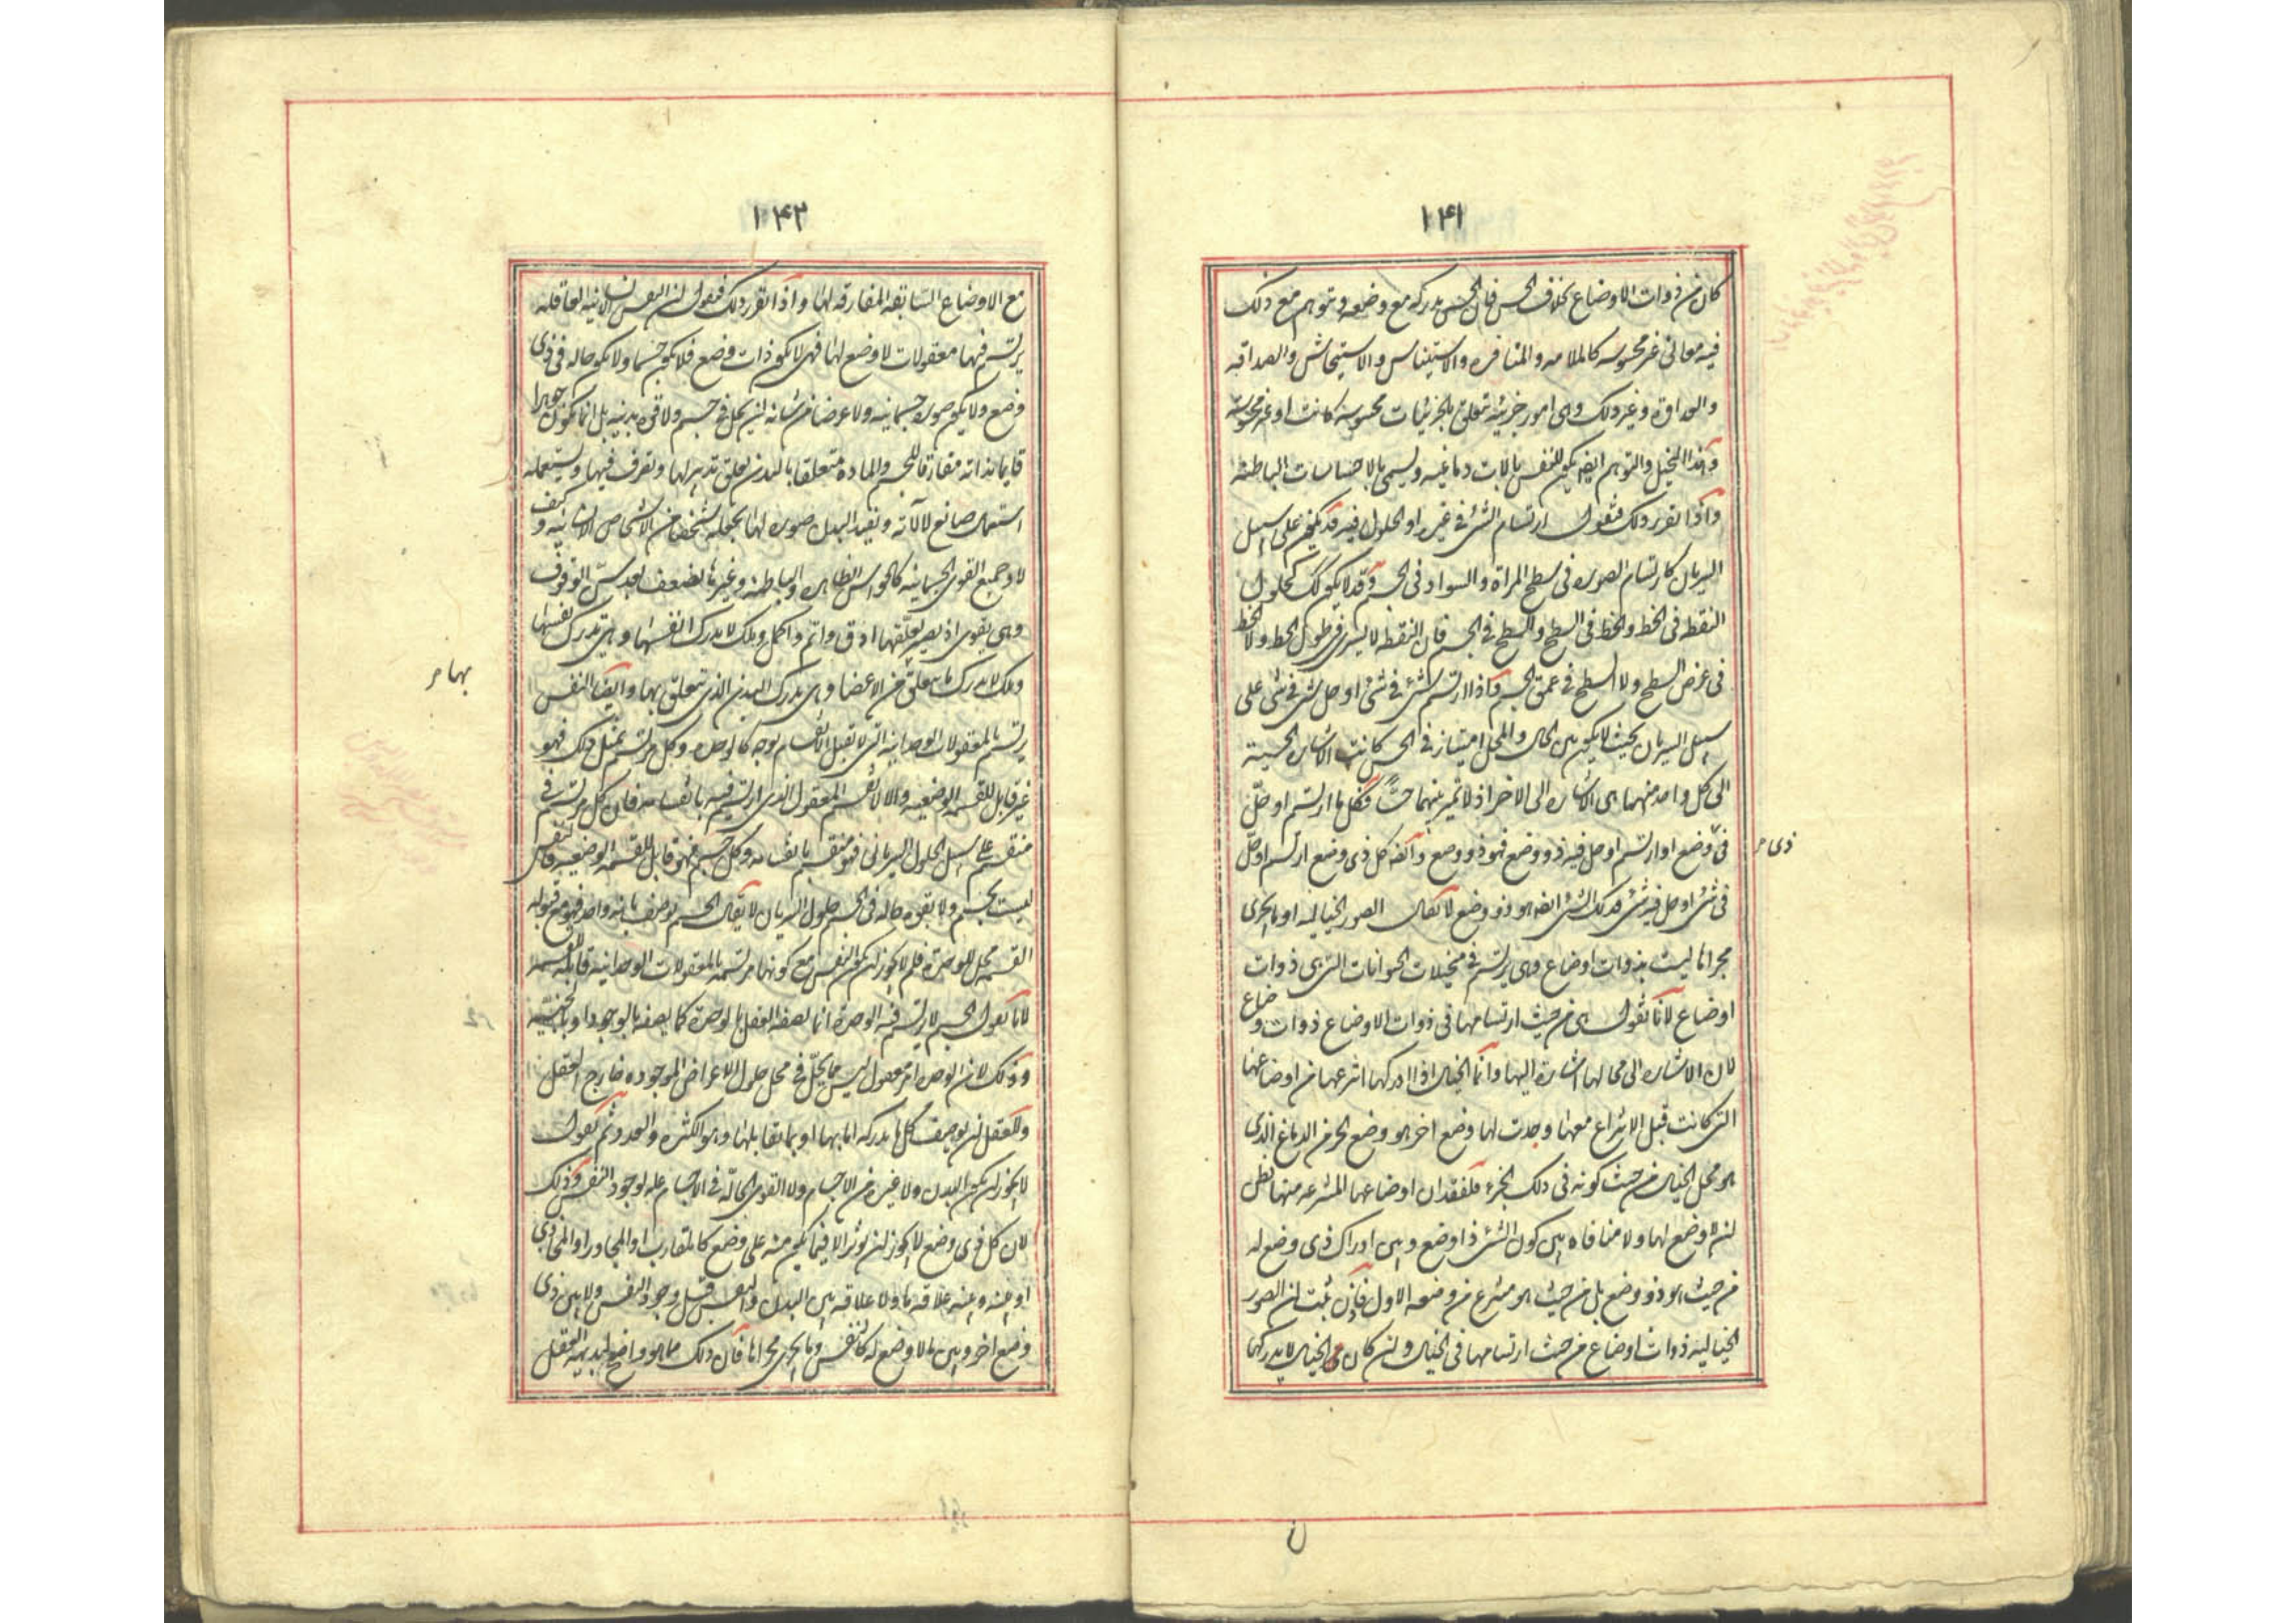 ١٤١
كان من ذوات الاوضاع بخلاف الحس فان الحس يدركه مع وضعه ويتوهم مع ذلك
فيه معانى غير محسوسه كالملامه والمنافره والاستيناس والاستيحاش والصداقه
والعداوة وغير ذلك وهى امور جزئية تتعلق بالجزئيات محسوسة كانت او غير محسوسة
وهذا التخيل والتوهم ايضا يكون للنفس بالات دماغيه ويسمى بالاحساسات الباطنة
واذا تقرر ذلك فنقول ارتسام الشئ فى غيره او الحلول فيه قد يكون على سبيل
السريان كارتسام الصوره فى سطح المراة والسواد فى الجسم وقد لا يكون كك كحلول
النقطه فى الخط والخط فى السطح والسطح فى الجسم فان النقطه لا يسرى فى طول الخط ولا الخط
فى عرض السطح ولا السطح فى عمق الجسم واذا ارتسم شئ فى شئ او حل شئ فى شئ على
سبيل السريان بحيث لا يكون بين الحال والمحل امتياز فى الحس كانت الاشاره الحسية
الى كل واحد منهما هى الاشاره الى الاخر اذ لا تميز بينهما حسًّا فكل ما ارتسم او حلّ
فى وضع او ارتسم او حل فيه ذو وضع فهو ذو وضع وانه كل ذى وضع ارتسم او حلّ
ذى
فى شئ او حل فيه شئ فذلك الشئ ايضا هو ذو وضع لا يقال الصور الخياليه او ما يجرى
مجراها ليست بذوات اوضاع وهى يرتسم فى متخيلات الحيوانات التى هى ذوات
اوضاع لانا نقول هى من حيث ارتسامها فى ذوات الاوضاع ذوات اوضاع
لان الاشاره الى محالها اشارة اليها وانما الخيال اذا ادركها انتزعها من اوضاعها
التى كانت قبل الانتزاع معها وجدت لها وضع اخر هو وضع الجزء من الدماغ الذى
هو محل الخيال من حيث كونه فى ذلك الجزء فلفقدان اوضاعها المنتزعه منها نظن
ان لا وضع لها ولا منافاه بين كون الشئ ذا وضع وبين ادراك ذى وضع له
من حيث هو ذو وضع بل من حيث هو منتزع من وضعه الاول فاذن ثبت ان الصور
الخياليه ذوات اوضاع من حيث ارتسامها فى الخيال وان كان الخيال لا يدركها
١٤٢
مع الاوضاع السابقه المفارقه لها واذا تقرر ذلك فنقول ان النفس الانسانيه العاقله
يرتسم فيها معقولات لا وضع لها فهى لا يكون ذات وضع فلا يكون جسما ولا يكون حاله فى ذى
وضع ولا يكون صوره جسمانيه ولا عرضا من شانه ان يحل فى جسم ولا قوه بدنيه بل انما يكون جوهرا
قايما بذاته مفارقا للجسم والماده متعلقا بالبدن تعلق تدبير لها وتصرف فيها ويستعمله
استعمال صانع لالاته ويفيد البدن صوره لها يجعله شخصا من الاشخاص الانسانيه وكيف
لا وجميع القوى الجسمانيه كالحواس الظاهره والباطنه وغيرها يضعف بعد سن الوقوف
وهى يقوى اذ يصير تعقلها ادق واتم واكمل وتلك لا يدرك انفسها وهى تدرك نفسها
وتلك لا يدرك ما يتعلق من الاعضا وهى يدرك البدن الذى تتعلق بها وايضا النفس
بها
يرتسم بالمعقولات الوحدانيه التى لا تقبل الانقسام بوجه كالوحده وكل مرتسم بمثل ذلك فهو
غير قابل للقسمه الوضعيه والا لانقسم المعقول الذى ارتسم فيه بانقسامه فان كل مرتسم فى
منقسم على سبيل الحلول السريانى فهو منقسم بانقسامه وكل جسم فهو قابل للقسمه الوضعيه فالنفس
ليست بجسم ولا بقوه حاله فى الجسم حلول السريان لا يقال الجسم يوصف بانه واحد فهو مع قبوله
القسمه محل للوحدة فلم لا يجوز ان يكون النفس مع كونها مرتسمه بالمعقولات الوحدانيه قابله للقسمه
لانا نقول الجسم لا يرتسم فيه الوحدة انما يصفه العقل بالوحدة كما يصفه بالوجود او بالجنسيّه
وذلك لان الوحده امر معقول ليس مما يحلّ فى محل حلول الاعراض الموجوده خارج العقل
وللعقل ان يوصف كل ما يدركه اما بها او بما يقابلها وهو الكثره والعدد ثم نقول
لا يجوز ان يكون البدن ولا غيره من الاجسام ولا القوى الحالّه فى الاجسام عله لوجود النفس وذلك
لان كل ذى وضع لا يجوز ان يؤثر الا فيما يكون منه على وضع كالمتقارب او المجاور او المحاذى
او بينه وبينه علاقه ما ولا علاقه بين البدن والنفس قبل وجود النفس ولا بين ذى
وضع اخر وبين ما لا وضع له كالنفس وما يجرى مجراها فان ذلك مما هو واضح لبديهة العقل